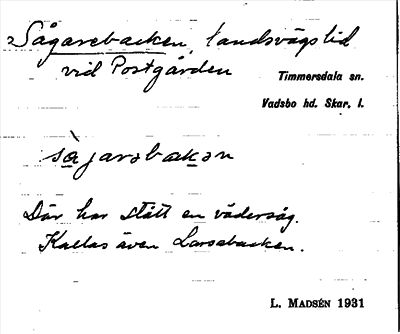 Sågarebacken, landsvägslid
vid Postgården
Timmersdala sn.
Vadsbo hd. Skar. l.
såjarəbakən
Där har stått en vädersåg.
Kallas även Larsabacken.
L. MADSÉN 1931